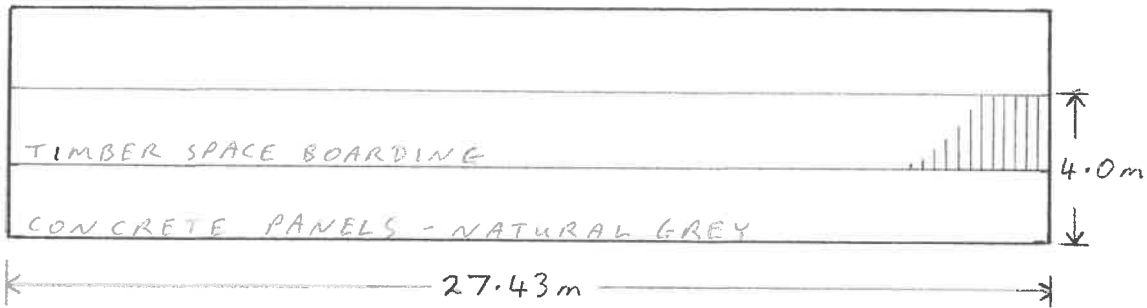 TIMBER SPACE BOARDING
4.0m
CONCRETE PANELS - NATURAL GREY
27.43m